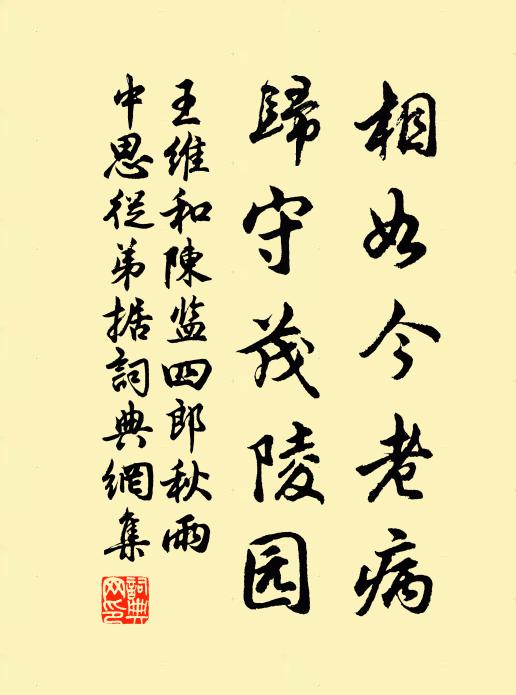 相如今老病
歸守茂陵园
王维和陳监四郎秋雨
中思從弟据詞典網集
詞典网印